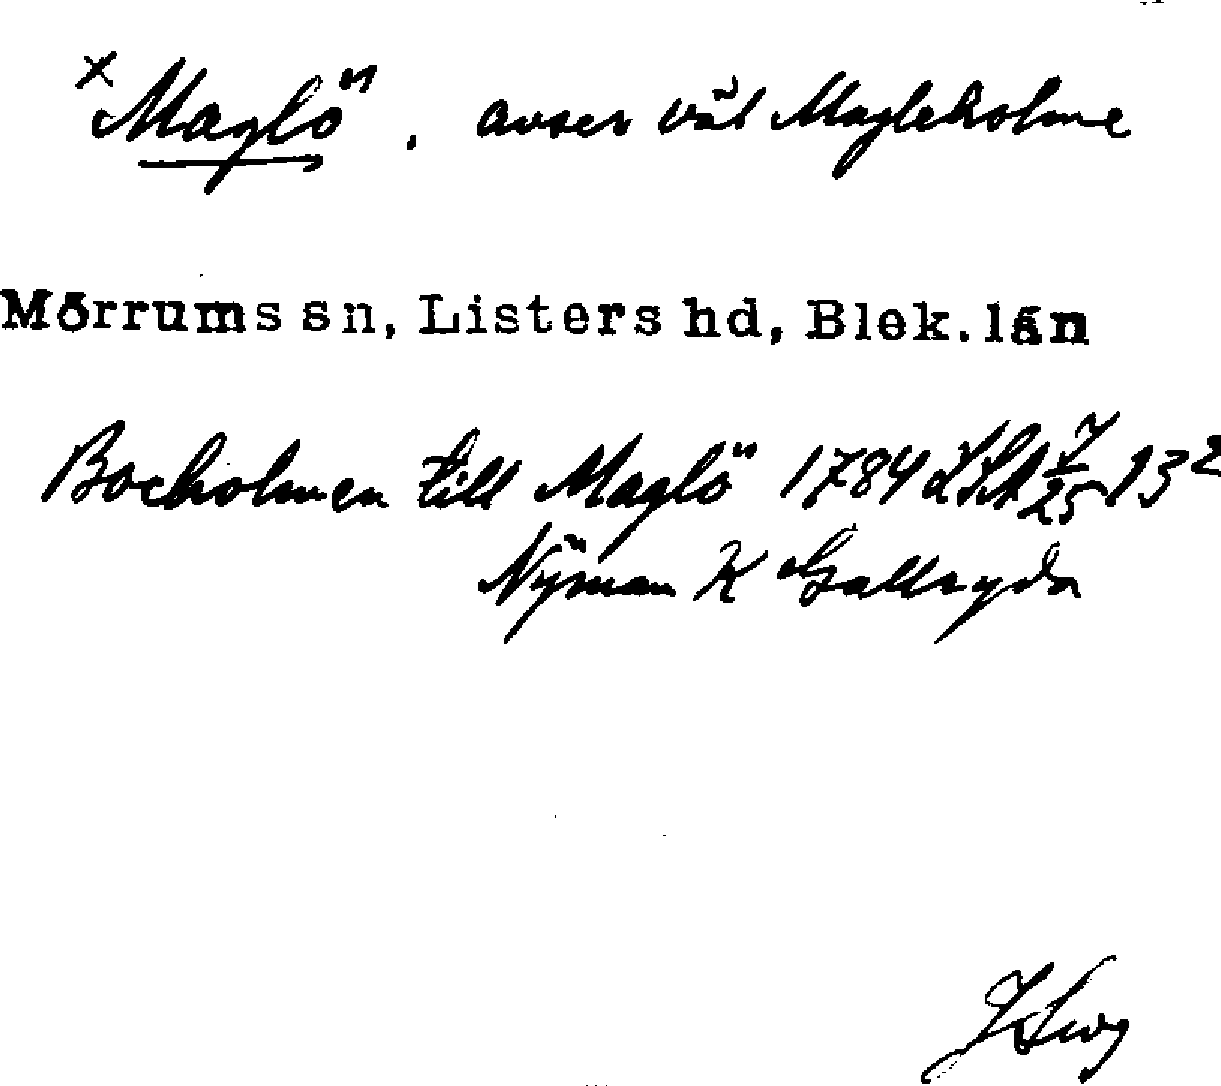 × Maglö, avser väl Magleholme
Mörrums sn, Listers hd, Blek. län
Bocholmen till Maglö 1784 LSA 7/25 13²
Nyman K Gallryda